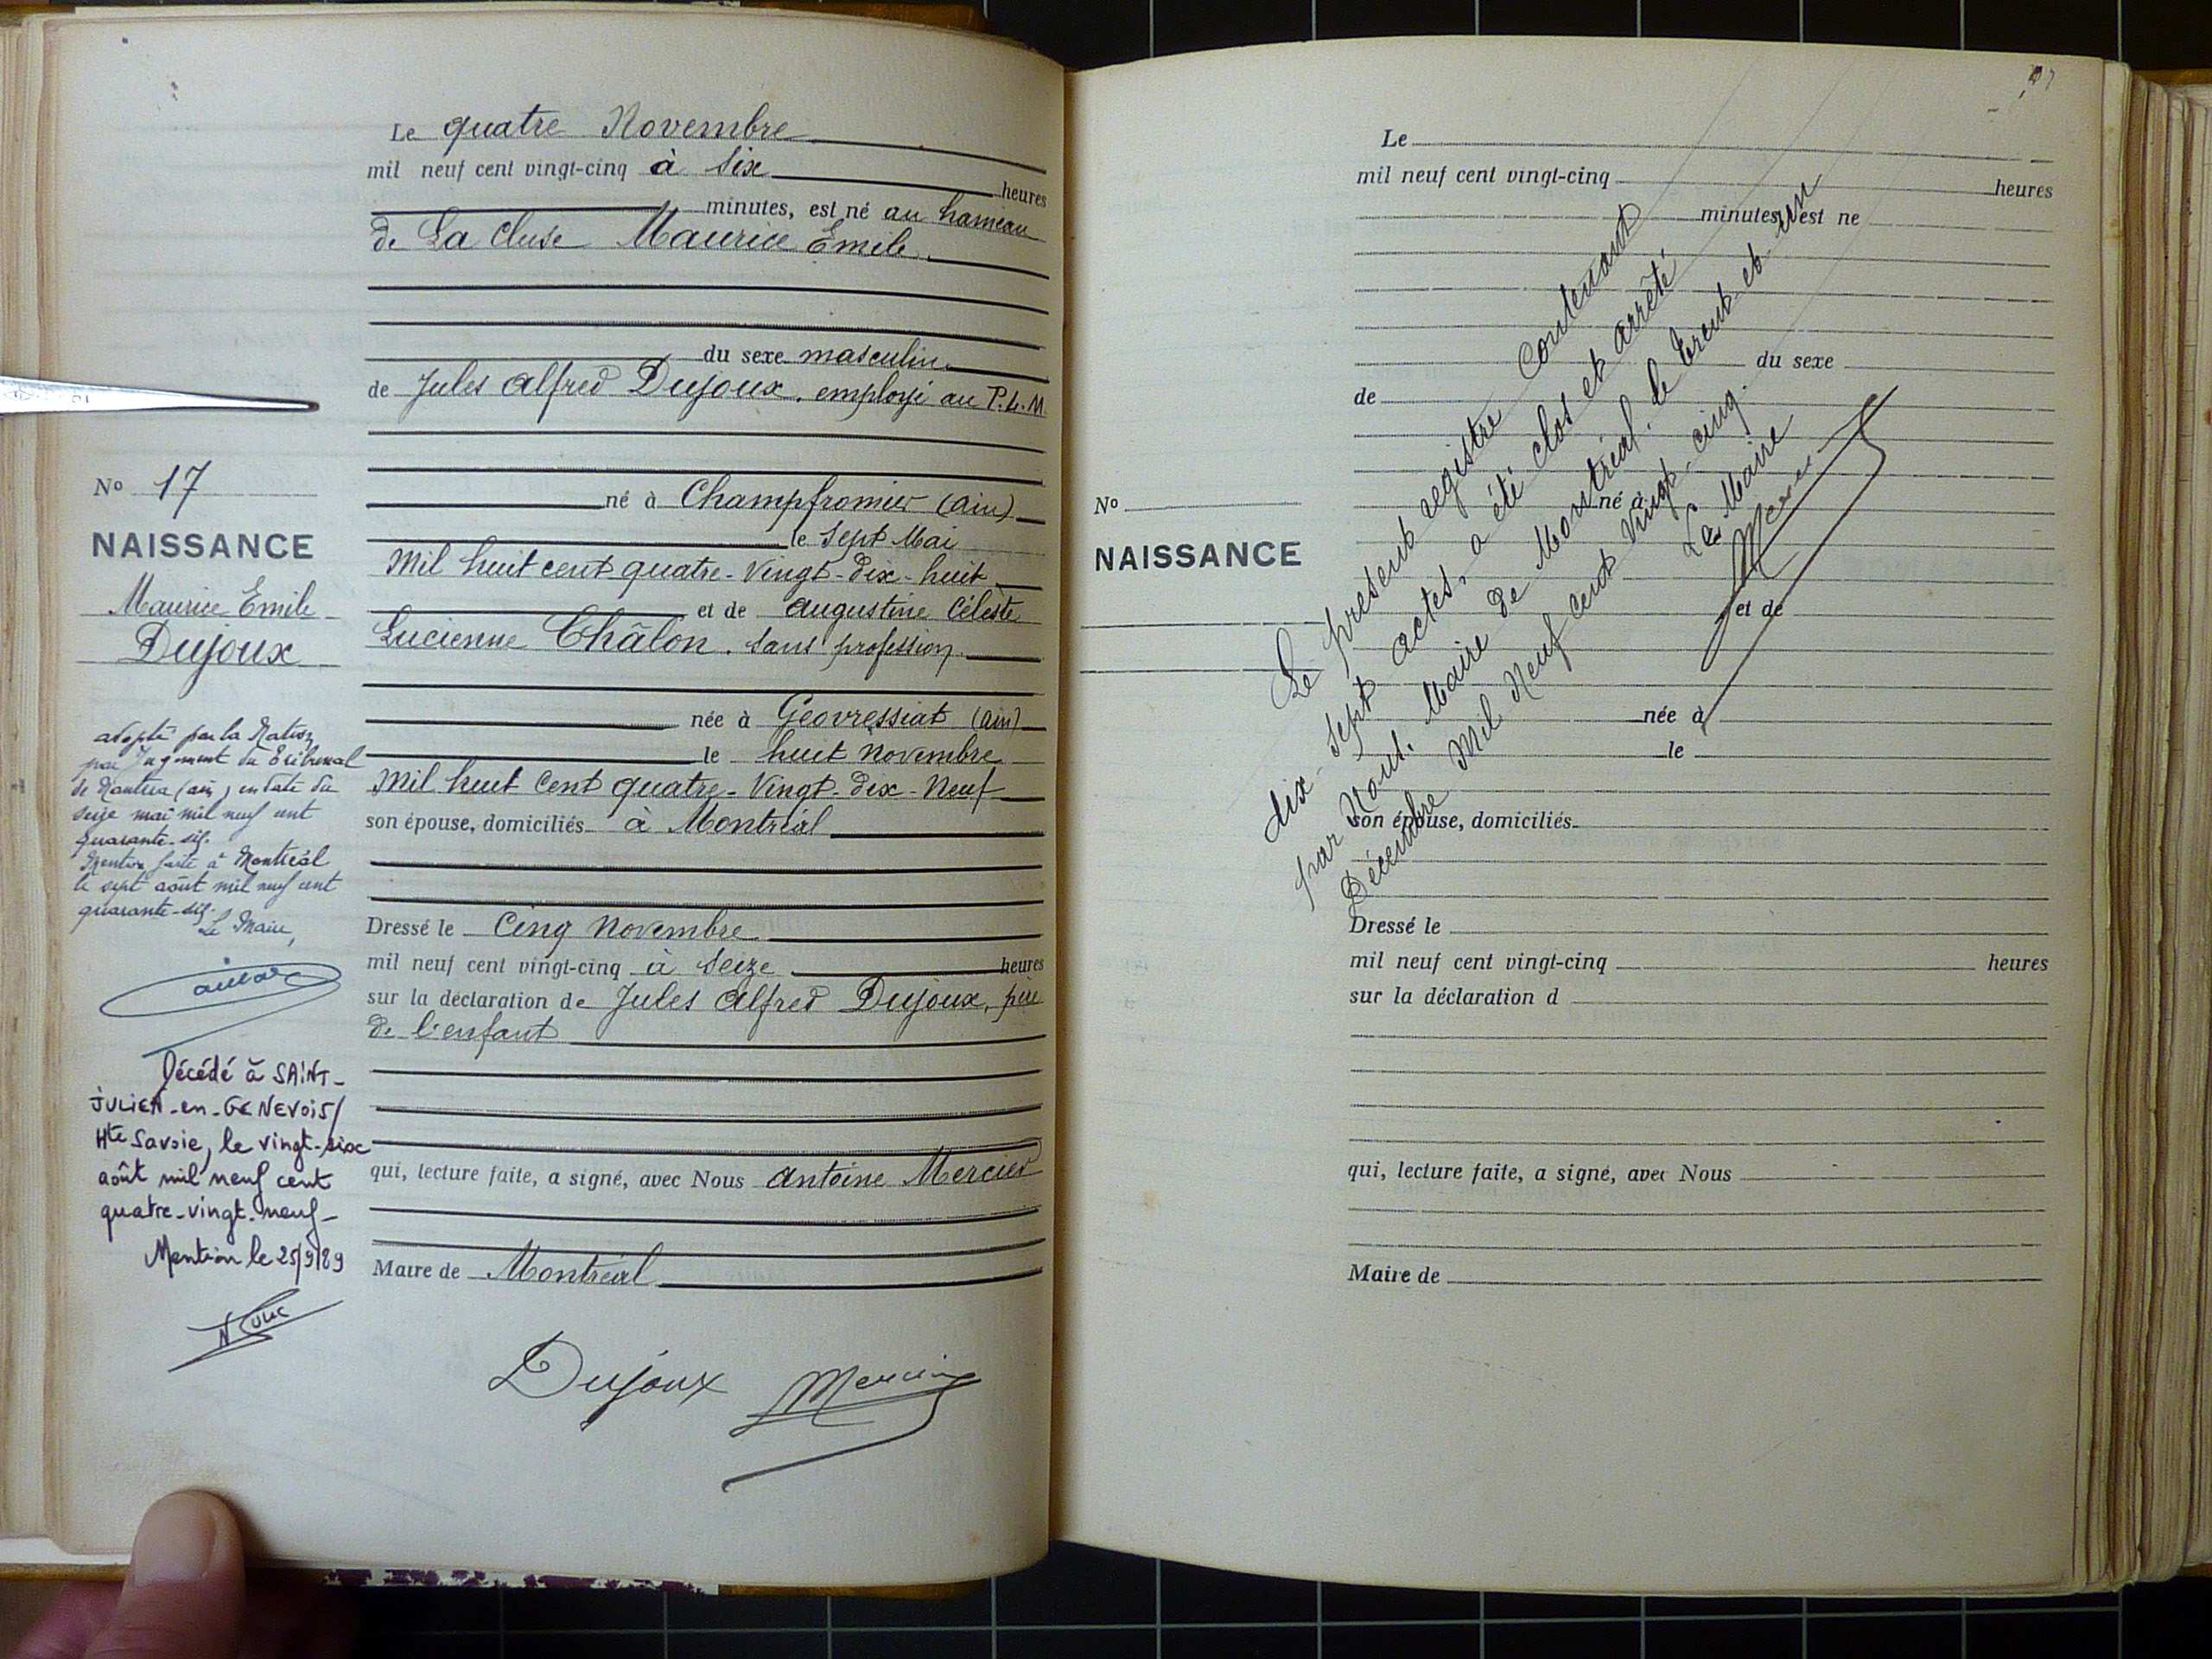 Le quatre Novembre
mil neuf cent vingt-cinq à six heures
minutes, est né au hameau
de La Cluse Maurice Emile
du sexe masculin
de Jules Alfred Dujoux, employé au P.L.M
né à Champfromier (Ain)
le Sept Mai
Mil huit cent quatre-Vingt-dix-huit
et de Augustine Céleste
Lucienne Châlon, sans profession
née à Geovressiat (Ain)
le huit Novembre
Mil huit Cent quatre-Vingt-dix-Neuf
son épouse, domiciliés à Montréal
Dressé le Cinq Novembre
mil neuf cent vingt-cinq à seize heures
sur la déclaration de Jules Alfred Dujoux, père
de l'enfant
qui, lecture faite, a signé, avec Nous Antoine Mercier
Maire de Montréal
Dujoux Mercier
No 17
NAISSANCE
Maurice Emile
Dujoux
adopté par la Nation
par Jugement du Tribunal
de Nantua (Ain) en date du
seize mai mil neuf cent
quarante-six.
Mention faite à Montréal
le sept août mil neuf cent
quarante-six.
Le Maire,
Décédé à SAINT-
JULIEN-en-GENEVOIS/
Hte Savoie, le vingt-six
août mil neuf cent
quatre-vingt-neuf-
Mention le 25/9/89
Le
mil neuf cent vingt-cinq heures
minutes, est né
du sexe
de
No
né à
NAISSANCE
et de
née à
le
son épouse, domiciliés
Dressé le
mil neuf cent vingt-cinq heures
sur la déclaration d
qui, lecture faite, a signé, avec Nous
Maire de
Le présent registre contenant
dix-sept actes, a été clos et arrêté
par Nous, Maire de Montréal, le trent-et-un
Décembre Mil Neuf cent Vingt-cinq.
Le Maire
Mercier